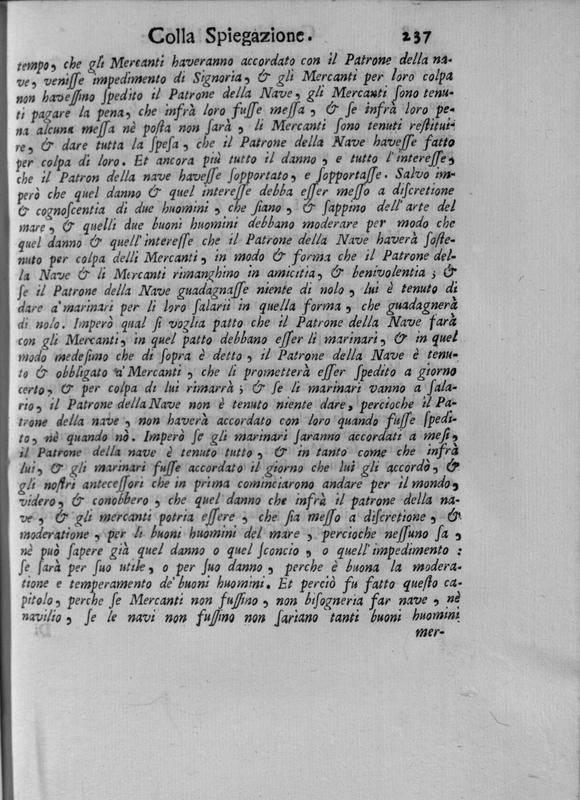 Colla Spiegazione. 237
tempo, che gli Mercanti haveranno accordato con il Patrone della na-
ve, veniſſe impedimento di Signoria, & gli Mercanti per loro colpa
non haveſſino ſpedito il Patrone della Nave, gli Mercanti ſono tenu-
ti pagare la pena, che infrà loro fuſſe meſſa, & ſe infrà loro pe-
na alcuna meſſa nè poſta non ſarà, li Mercanti ſono tenuti reſtitui-
re, & dare tutta la ſpeſa, che il Patrone della Nave haveſſe fatto
per colpa di loro. Et ancora più tutto il danno, e tutto l'intereſſe,
che il Patron della nave haveſſe ſopportato, e ſopportaſſe. Salvo im-
però che quel danno & quel intereſſe debba eſſer meſſo a diſcretione
& cognoſcentia di due huomini, che ſiano, & ſappino dell'arte del
mare, & quelli due buoni huomini debbano moderare per modo che
quel danno & quell'intereſſe che il Patrone della Nave haverà ſoſte-
nuto per colpa delli Mercanti, in modo & forma che il Patrone del-
la Nave & li Mercanti rimanghino in amicitia, & benivolentia; &
ſe il Patrone della Nave guadagnaſſe niente di nolo, lui è tenuto di
dare a' marinari per li loro ſalarii in quella forma, che guadagnerà
di nolo. Imperò qual ſi voglia patto che il Patrone della Nave farà
con gli Mercanti, in quel patto debbano eſſer li marinari, & in quel
modo medeſimo che di ſopra è detto, il Patrone della Nave è tenu-
to & obbligato a' Mercanti, che li prometterà eſſer ſpedito a giorno
certo, & per colpa di lui rimarrà; & ſe li marinari vanno a ſala-
rio, il Patrone della Nave non è tenuto niente dare, percioche il Pa-
trone della nave, non haverà accordato con loro quando fuſſe ſpedi-
to, nè quando nò. Imperò ſe gli marinari ſaranno accordati a meſi,
il Patrone della nave è tenuto tutto, & in tanto come che infrà
lui, & gli marinari fuſſe accordato il giorno che lui gli accordò, &
gli noſtri anteceſſori che in prima cominciarono andare per il mondo,
videro, & conobbero, che quel danno che infrà il patrone della na-
ve, & gli mercanti potria eſſere, che ſia meſſo a diſcretione, &
moderatione, per li buoni huomini del mare, percioche neſſuno ſa,
nè può ſapere già quel danno o quel ſconcio, o quell'impedimento:
ſe ſarà per ſuo utile, o per ſuo danno, perche è buona la modera-
tione e temperamento de' buoni huomini. Et perciò fu fatto queſto ca-
pitolo, perche ſe Mercanti non fuſſino, non biſogneria far nave, nè
navilio, ſe le navi non fuſſino non ſariano tanti buoni huomini
mer-